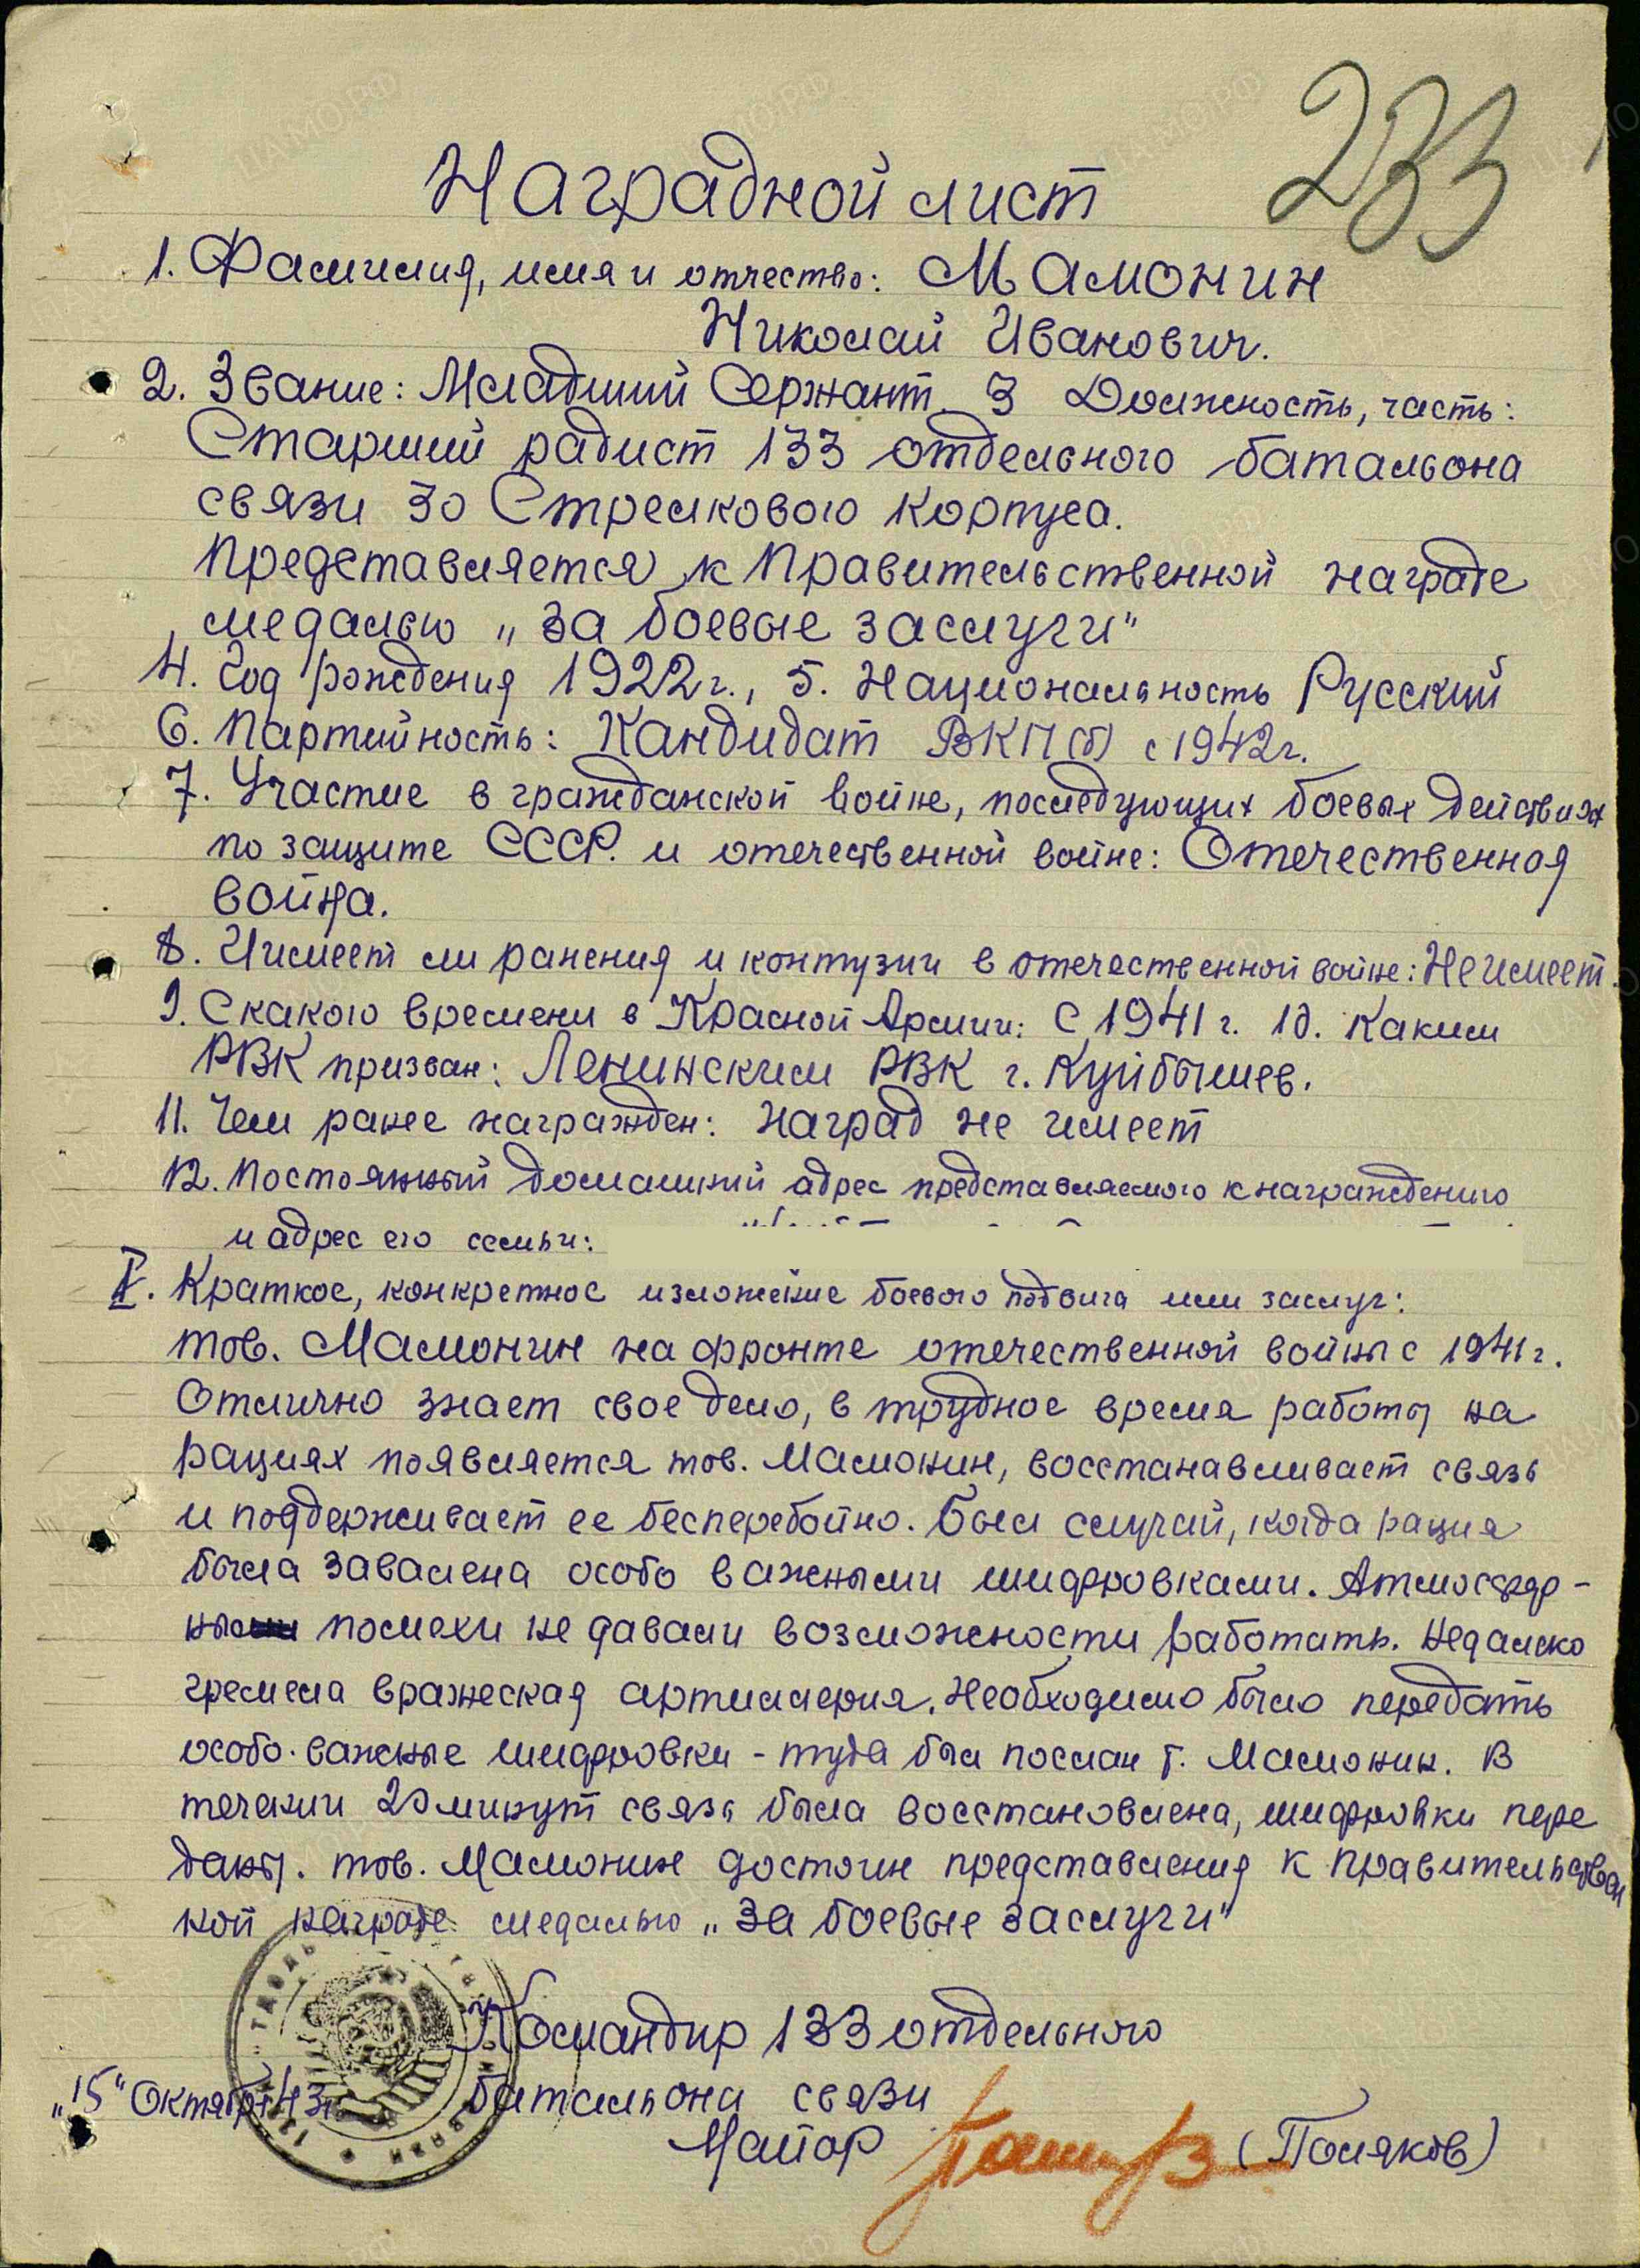 233
Наградной лист
1. Фамилия, имя и отчество: Мамонин
Николай Иванович.
2. Звание: Младший Сержант 3 Должность, часть:
Старший радист 133 отдельного батальона
связи 30 Стрелкового Корпуса.
Представляется к Правительственной награде
медалью „За боевые заслуги"
4. Год рождения 1922г., 5. Национальность Русский
6. Партийность: Кандидат ВКП(б) с 1942г.
7. Участие в гражданской войне, последующих боевых действиях
по защите СССР. и отечественной войне: Отечественная
война.
8. Имеет ли ранения и контузии в отечественной войне: Не имеет.
9. С какого времени в Красной Армии: С 1941 г. 10. Каким
РВК призван: Ленинским РВК г. Куйбышев.
11. Чем ранее награжден: наград не имеет
12. Постоянный домашний адрес представляемого к награждению
и адрес его семьи:
I. Краткое, конкретное изложение боевого подвига или заслуг:
тов. Мамонин на фронте отечественной войны с 1941г.
Отлично знает свое дело, в трудное время работы на
рациях появляется тов. Мамонин, восстанавливает связь
и поддерживает ее бесперебойно. Был случай, когда рация
была завалена особо важными шифровками. Атмосфер-
ные помехи не давали возможности работать. Недалеко
гремела вражеская артиллерия. Необходимо было передать
особо-важные шифровки - туда был послан т. Мамонин. В
течении 20 минут связь была восстановлена, шифровки пере
даны. тов. Мамонин достоин представления к правительствен
ной награде медалью „За боевые заслуги"
Командир 133 отдельного
„15" Октября 43г. батальона связи
Майор (Поляков)